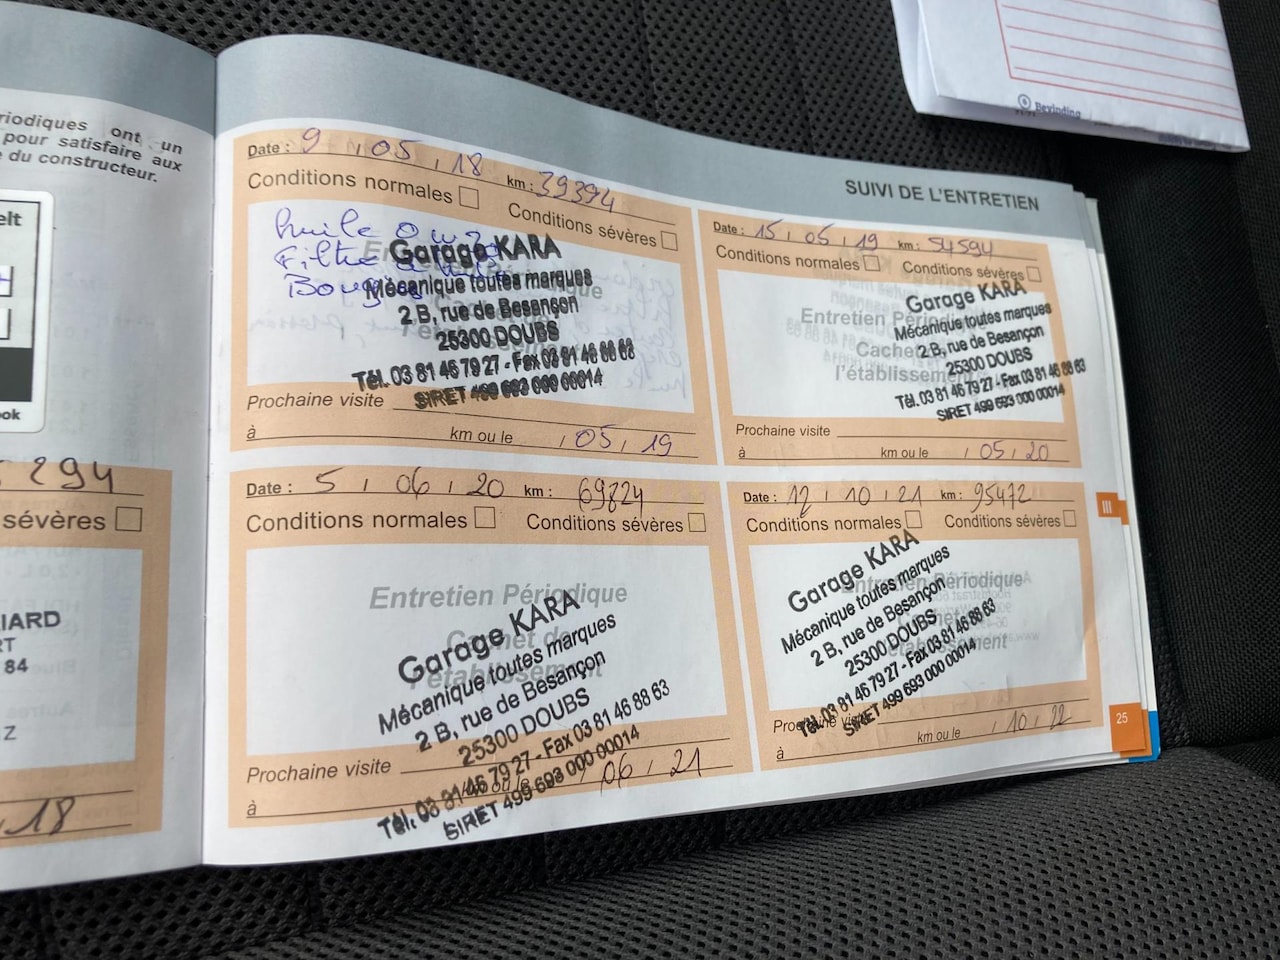 riodiques ont un
pour satisfaire aux
du constructeur.
elt
ook
294
sévères
IARD
RT
84
Z
18
SUIVI DE L'ENTRETIEN
Date : 9 , 05 , 18 km : 39394
Conditions normales Conditions sévères
Huile 0w30
Filtre à huile
Garage KARA
Mécanique toutes marques
2 B, rue de Besançon
25300 DOUBS
Tél. 03 81 46 79 27 - Fax 03 81 46 88 63
SIRET 499 693 000 00014
Prochaine visite
à km ou le , 05 , 19
Date : 15 , 05 , 19 km : 54594
Conditions normales Conditions sévères
Entretien Périodique
Cachet
l'établissement
Garage KARA
Mécanique toutes marques
2 B, rue de Besançon
25300 DOUBS
Tél. 03 81 46 79 27 - Fax 03 81 46 88 63
SIRET 499 693 000 00014
Prochaine visite
à km ou le , 05 , 20
Date : 5 , 06 , 20 km : 69824
Conditions normales Conditions sévères
Entretien Périodique
Cachet de
l'établissement
Garage KARA
Mécanique toutes marques
2 B, rue de Besançon
25300 DOUBS
Tél. 03 81 46 79 27 - Fax 03 81 46 88 63
SIRET 499 693 000 00014
Prochaine visite
à km ou le , 06 , 21
Date : 12 , 10 , 21 km : 95472
Conditions normales Conditions sévères
Entretien Périodique
Cachet de
l'établissement
Garage KARA
Mécanique toutes marques
2 B, rue de Besançon
25300 DOUBS
Tél. 03 81 46 79 27 - Fax 03 81 46 88 63
SIRET 499 693 000 00014
Prochaine visite
à km ou le , 10 , 22
III
25